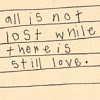 all is not
lost while
there is
still love.